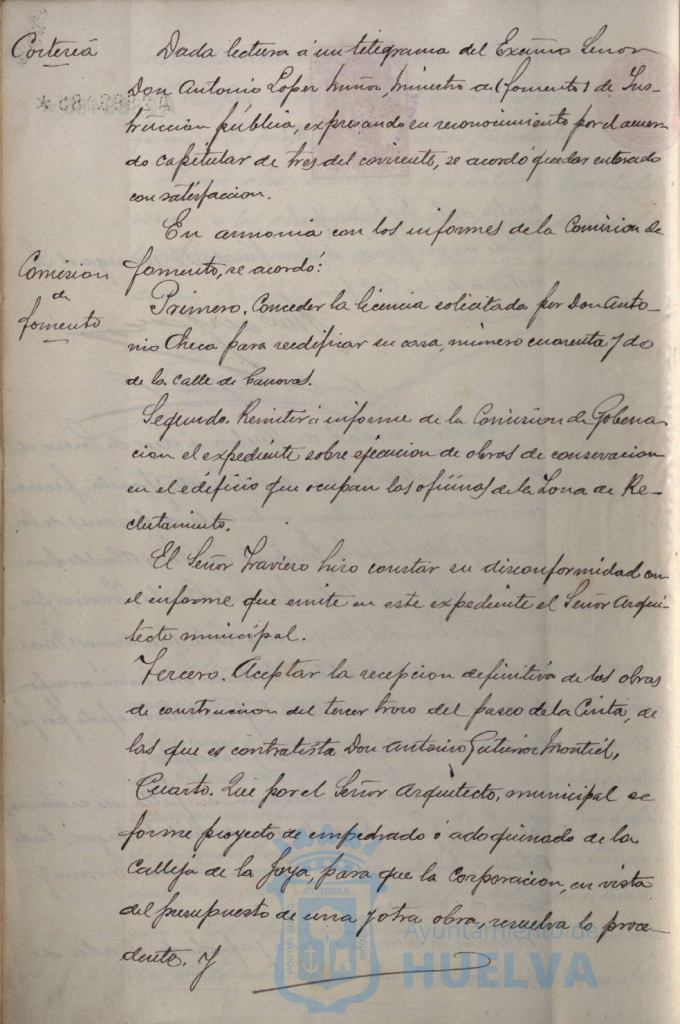 Cortesía
Dada lectura á un telegrama del Excmo Señor
Don Antonio Lopez Muñoz, Ministro de (fomento) de Ins-
trucción pública, expresando su reconocimiento por el acuer-
do capitular de tres del corriente, se acordó quedar enterado
con satisfaccion.
En armonia con los informes de la Comision de
Comision de fomento
fomento, se acordó:
Primero. Conceder la licencia solicitada por Don Anto-
nio Checa para reedificar su casa, número cuarenta y do
de la calle de Canovas.
Segundo. Remitir á informe de la Comision de Goberna-
cion el expediente sobre ejecucion de obras de conservacion
en el edificio que ocupan las oficinas de la Zona de Re-
clutamiento.
El Señor Traviero hizo constar su disconformidad con
el informe que emite en este expediente el Señor Arqui-
tecto municipal.
Tercero. Aceptar la recepcion definitiva de las obras
de construccion del tercer trozo del paseo de la Cinta, de
las que es contratista Don Antonio Gutierrez Montiel,
Cuarto. Que por el Señor Arquitecto, municipal se
forme proyecto de empedrado ó adoquinado de la
Calleja de la Joya, para que la Corporacion, en vista
del presupuesto de una y otra obra, resuelva lo proce-
dente. Y
Ayuntamiento de
HUELVA